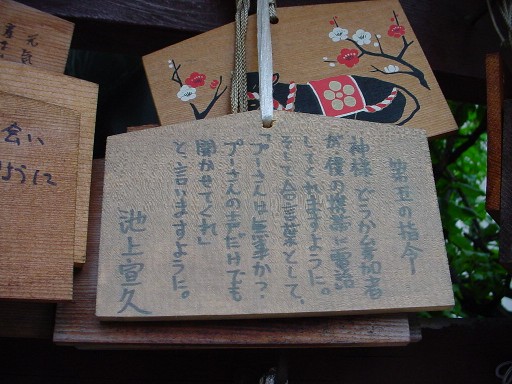 第五の指令
神様 どうか参加者
が僕の携帯に電話
してくれますように。
そして合言葉として、
「プーさんは無事か?
プーさんの声だけでも
聞かせてくれ」
と、言いますように。
池上宣久
会い
ように
元気